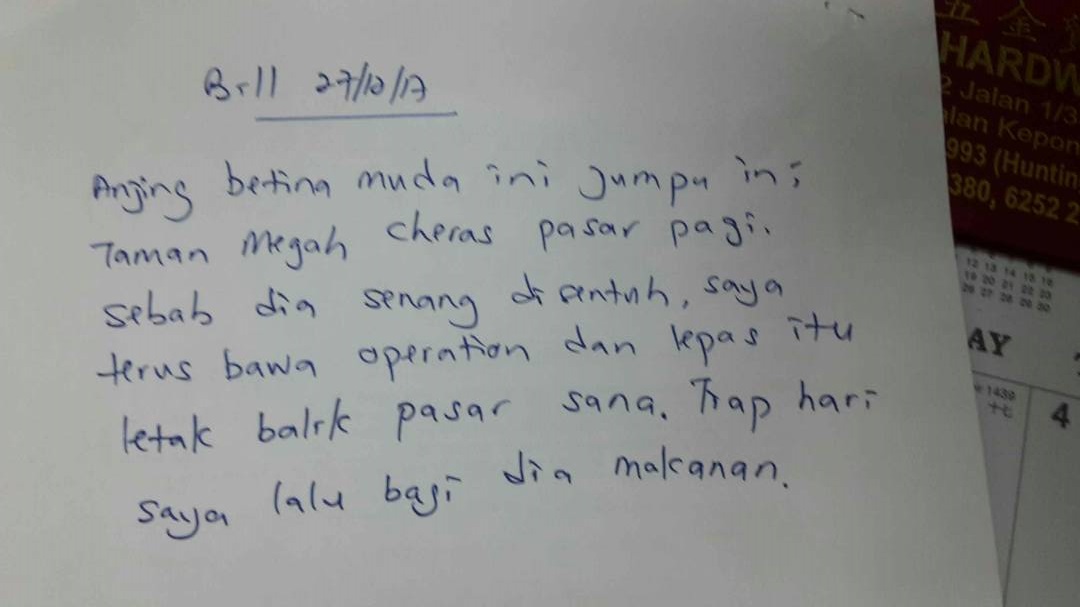 B-11 27/12/17
Anjing betina muda ini jumpa ini
Taman Megah cheras pasar pagi.
sebab dia senang disentuh, saya
terus bawa operation dan lepas itu
letak balik pasar sana. Tiap hari
saya lalu bagi dia makanan.
五金
HARDW
2 Jalan 1/3
lan Kepon
993 (Huntin
380, 6252 2
12 13 14 15 16
19 20 21 22 23
26 27 28 29 30
AY
1439
十七
4